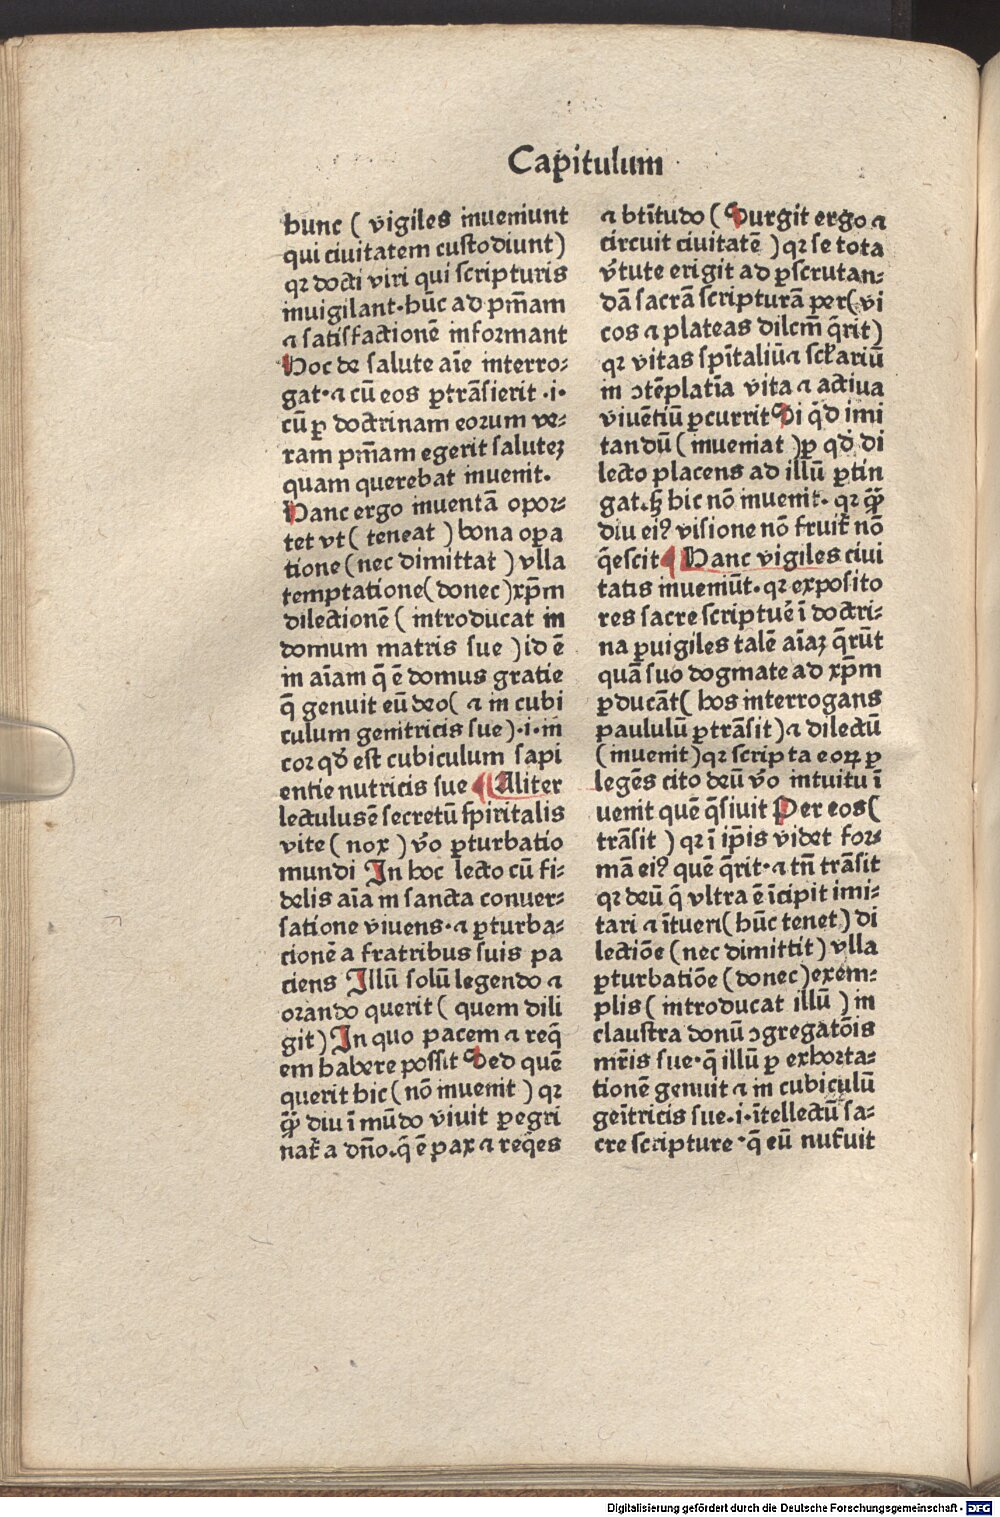 Capitulum
hunc ( vigiles inueniunt
qui ciuitatem custodiunt)
qꝛ docti viri qui scripturis
inuigilant·hūc ad pm̄am
⁊ satisfactionē informant
Hoc de salute aīe interro⸗
gat·⁊ cū eos ꝑtrāsierit ·i·
cū ꝑ doctrinam eorum ve⸗
ram pm̄am egerit saluteꝫ
quam querebat inuenit.
Hanc ergo inuentā opor⸗
tet vt ( teneat ) bona oꝑa
tione (nec dimittat ) vlla
temptatione(donec)xp̄m
dilectionē ( introducat in
domum matris sue ) id ē
in aīam q̄ ē domus gratie
q̄ genuit eū deo( ⁊ in cubi
culum genitricis sue)·i·in
cor qd̄ est cubiculum sapi
entie nutricis sue ¶Aliter
lectulus ē secretū spiritalis
vite ( nox ) v̄o ꝑturbatio
mundi In hoc lecto cū fi⸗
delis aīa in sancta conuer⸗
satione viuens·⁊ ꝑturba⸗
tionē a fratribus suis pa
ciens Illū solū legendo ⁊
orando querit ( quem dili
git) In quo pacem ⁊ req̄
em habere possit Sed quē
querit hic (nō inuenit ) qꝛ
qͫ̄ diu ī mūdo viuit ꝑegri
nat̄ a dn̄o.q̄ ē pax ⁊ req̄es
⁊ btītudo ( Surgit ergo ⁊
circuit ciuitatē ) qꝛ se tota
v̄tute erigit ad ꝑscrutan⸗
dā sacrā scripturā per(vi
cos ⁊ plateas dilcm̄ q̄rit)
qꝛ vitas spītaliū⁊ scl̄ariū
in ꝯtēplatīa vita ⁊ actiua
viuētiū ꝑcurrit Si q̇d imi
tandū ( inueniat )ꝑ qd̄ di
lecto placens ad illū ꝑtin
gat.ꝧ hic nō inuenit· qꝛ qͫ̄
diu eiꝰ visione nō fruit̄ nō
q̄escit¶ Hanc vigiles ciui
tatis inueniūt·qꝛ exposito
res sacre scriptue᷑ ī doctri⸗
na ꝑuigiles talē aīaꝫ q̄rūt
quā suo dogmate ad xp̄m
ꝑducāt( hos interrogans
paululū ꝑtrāsit)⁊ dilectū
(inuenit)qꝛ scripta eoꝝ ꝑ
legēs cito deū v̄o intuitu ī
uenit quē q̄siuit Per eos(
trāsit ) qꝛ ī ip̄is videt for⸗
mā eiꝰ quē q̄rit·⁊ tn̄ trāsit
qꝛ deū q̄ vltra ē īcipit imi⸗
tari ⁊ ītueri(hūc tenet) di
lectiōe (nec dimittit) vlla
ꝑturbatiōe (donec)exem⸗
plis ( introducat illū ) in
claustra domū ꝯgregatōis
mr̄is sue·q̄ illū ꝑ exhorta⸗
tionē genuit ⁊ in cubiculū
geītricis sue·i·ītellectū sa⸗
cre scripture ·q̄ eū nutriuit
Digitalisierung gefördert durch die Deutsche Forschungsgemeinschaft - DFG